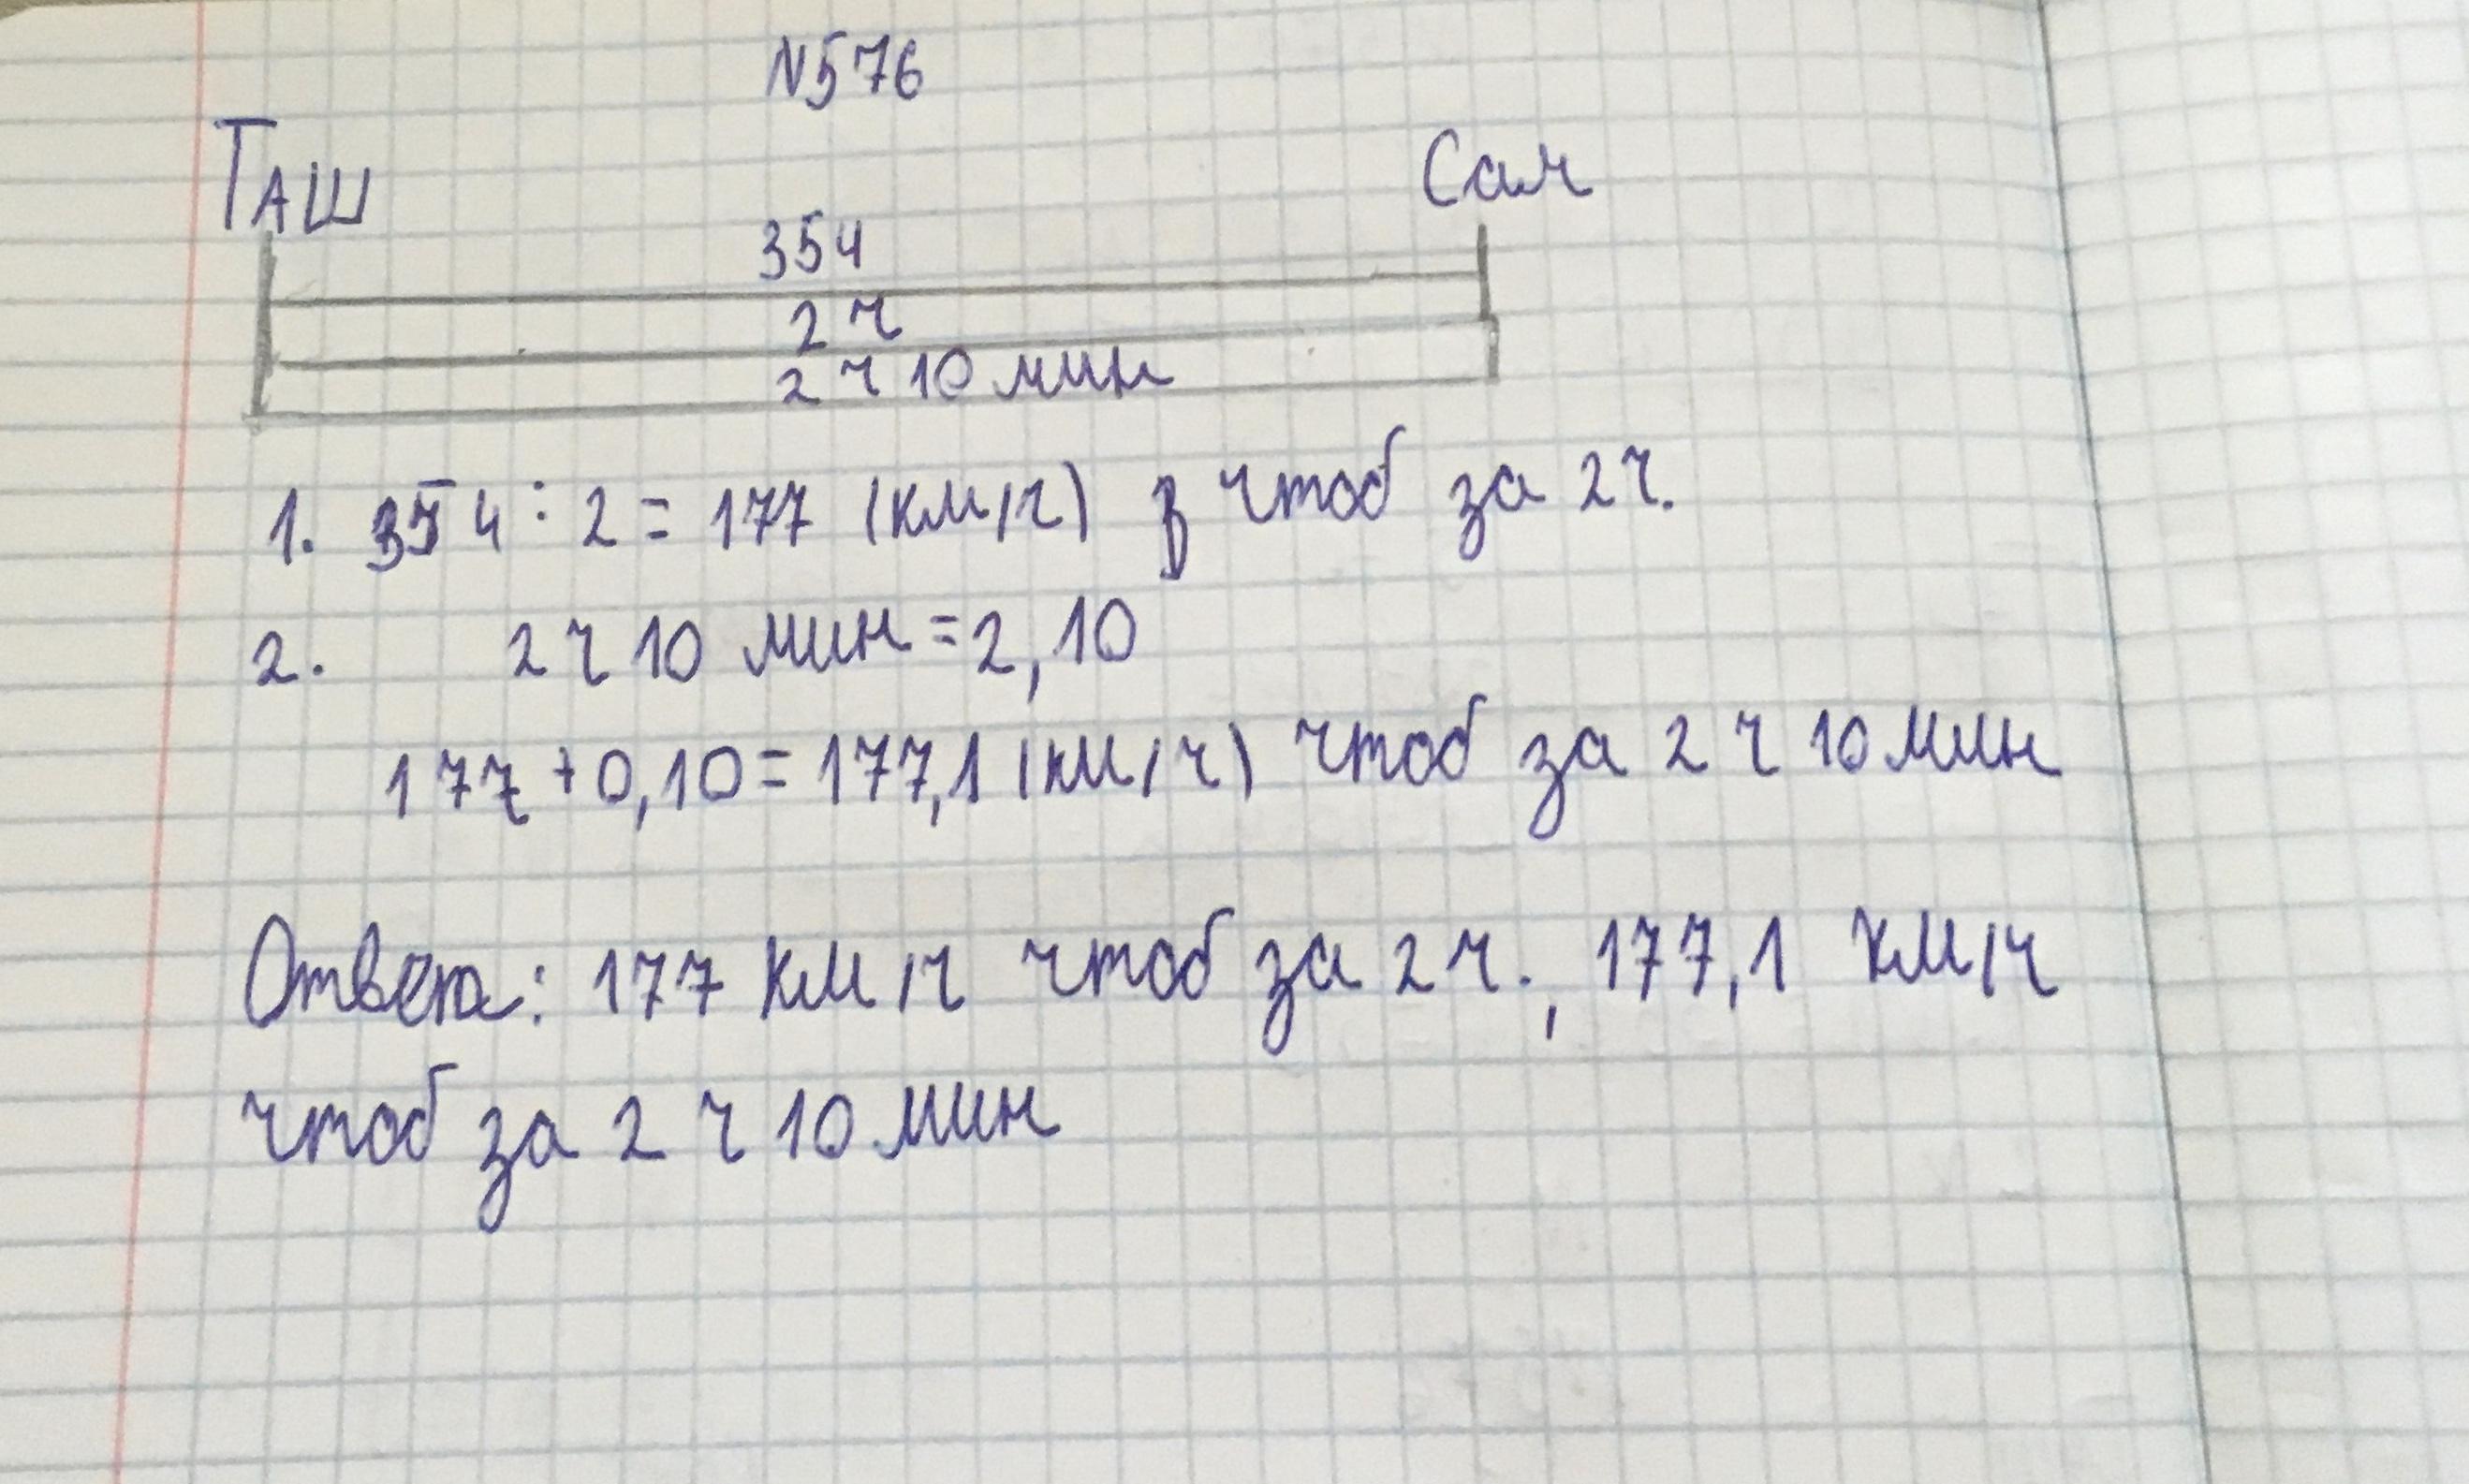 N576
ТАШ
Сам
354
2 ч
2 ч 10 мин
1. 354 : 2 = 177 (км/ч) чтоб за 2 ч.
2. 2 ч 10 мин = 2,10
177 + 0,10 = 177,1 (км/ч) чтоб за 2 ч 10 мин
Ответ: 177 км/ч чтоб за 2 ч., 177,1 км/ч
чтоб за 2 ч 10 мин